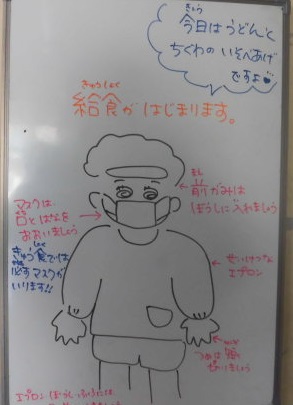 きょう
今日はうどんと
ちくわのいそべあげ
ですよ
きゅうしょく
給食がはじまります。
まえ
前がみは
ぼうしに入れましょう
マスクは
口とはなを
おおいましょう
きゅう食では
必ずマスクが
いります!!
せいけつな
エプロン
つめは短く
きりましょう
エプロン